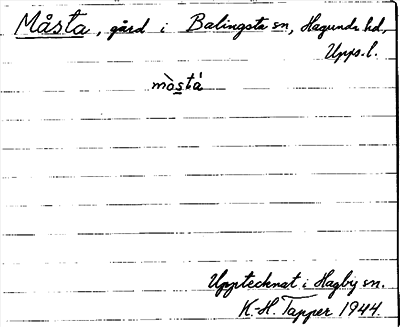 Måsta, gård i Balingsta sn, Hagunda hd,
Upps. l.
mò̀stá
Upptecknat i Hagby sn.
K.-H. Tapper 1944.